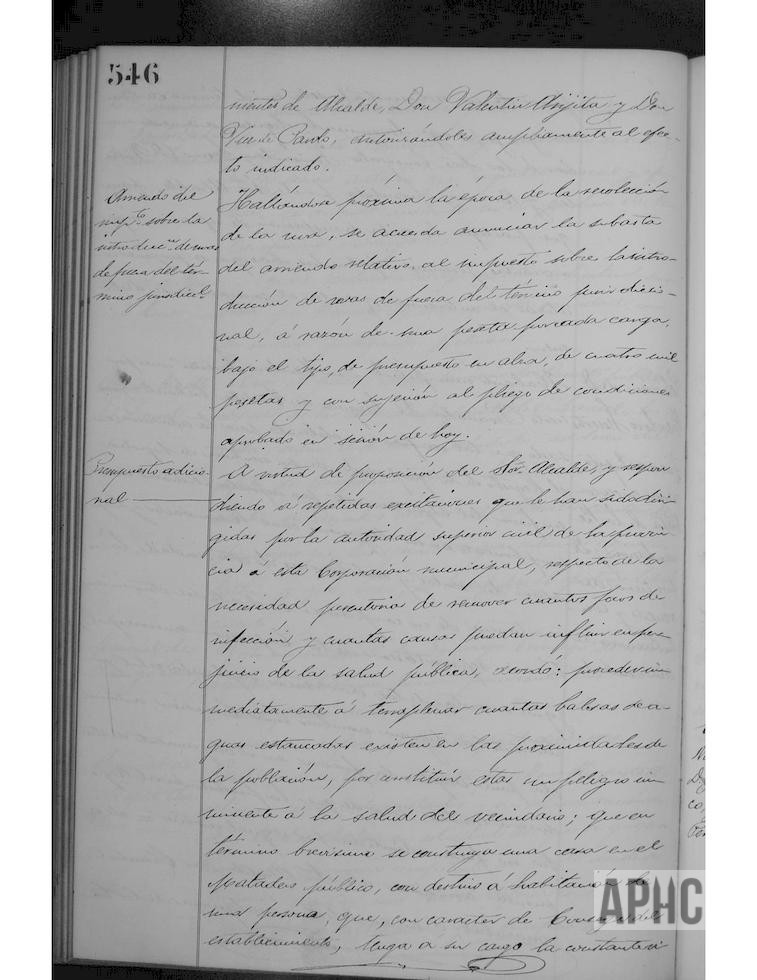 546
nientes de Alcalde, Don Valentin Arijita y Don
Vice de Pardo, autorizándoles ampliamente al efec-
to indicado.
Arriendo del
imp.to sobre la
introducc.n de uvas
de fuera del tér-
mino jurisdicc.l
Hallándose próxima la época de la recolección
de la uva, se acuerda anunciar la subasta
del arriendo relativo al impuesto sobre la intro-
ducción de uvas de fuera del término jurisdiccio-
nal, á razón de una peseta por cada carga,
bajo el tipo, de presupuesto en alza, de cuatro mil
pesetas y con sujeción al pliego de condiciones
aprobado en sesión de hoy.
Presupuesto adicio-
nal
A virtud de proposición del Sor. Alcalde, y respon-
diendo á repetidas excitaciones que le han sido diri-
gidas por la autoridad superior civil de la provin-
cia á esta Corporación municipal, respecto de la
necesidad perentoria de remover cuantos focos de
infección y cuantas causas puedan influir en per-
juicio de la salud pública, acordó: proceder in-
mediatamente á terraplenar cuantas balsas de a-
guas estancadas existen en las proximidades de
la población, por constituir estas un peligro in-
minente á la salud del vecindario; que en
término brevísimo se construya una casa en el
Matadero público, con destino á habitación de
una persona, que, con carácter de Conserje del
establecimiento, tenga á su cargo la constante vi-
APHC